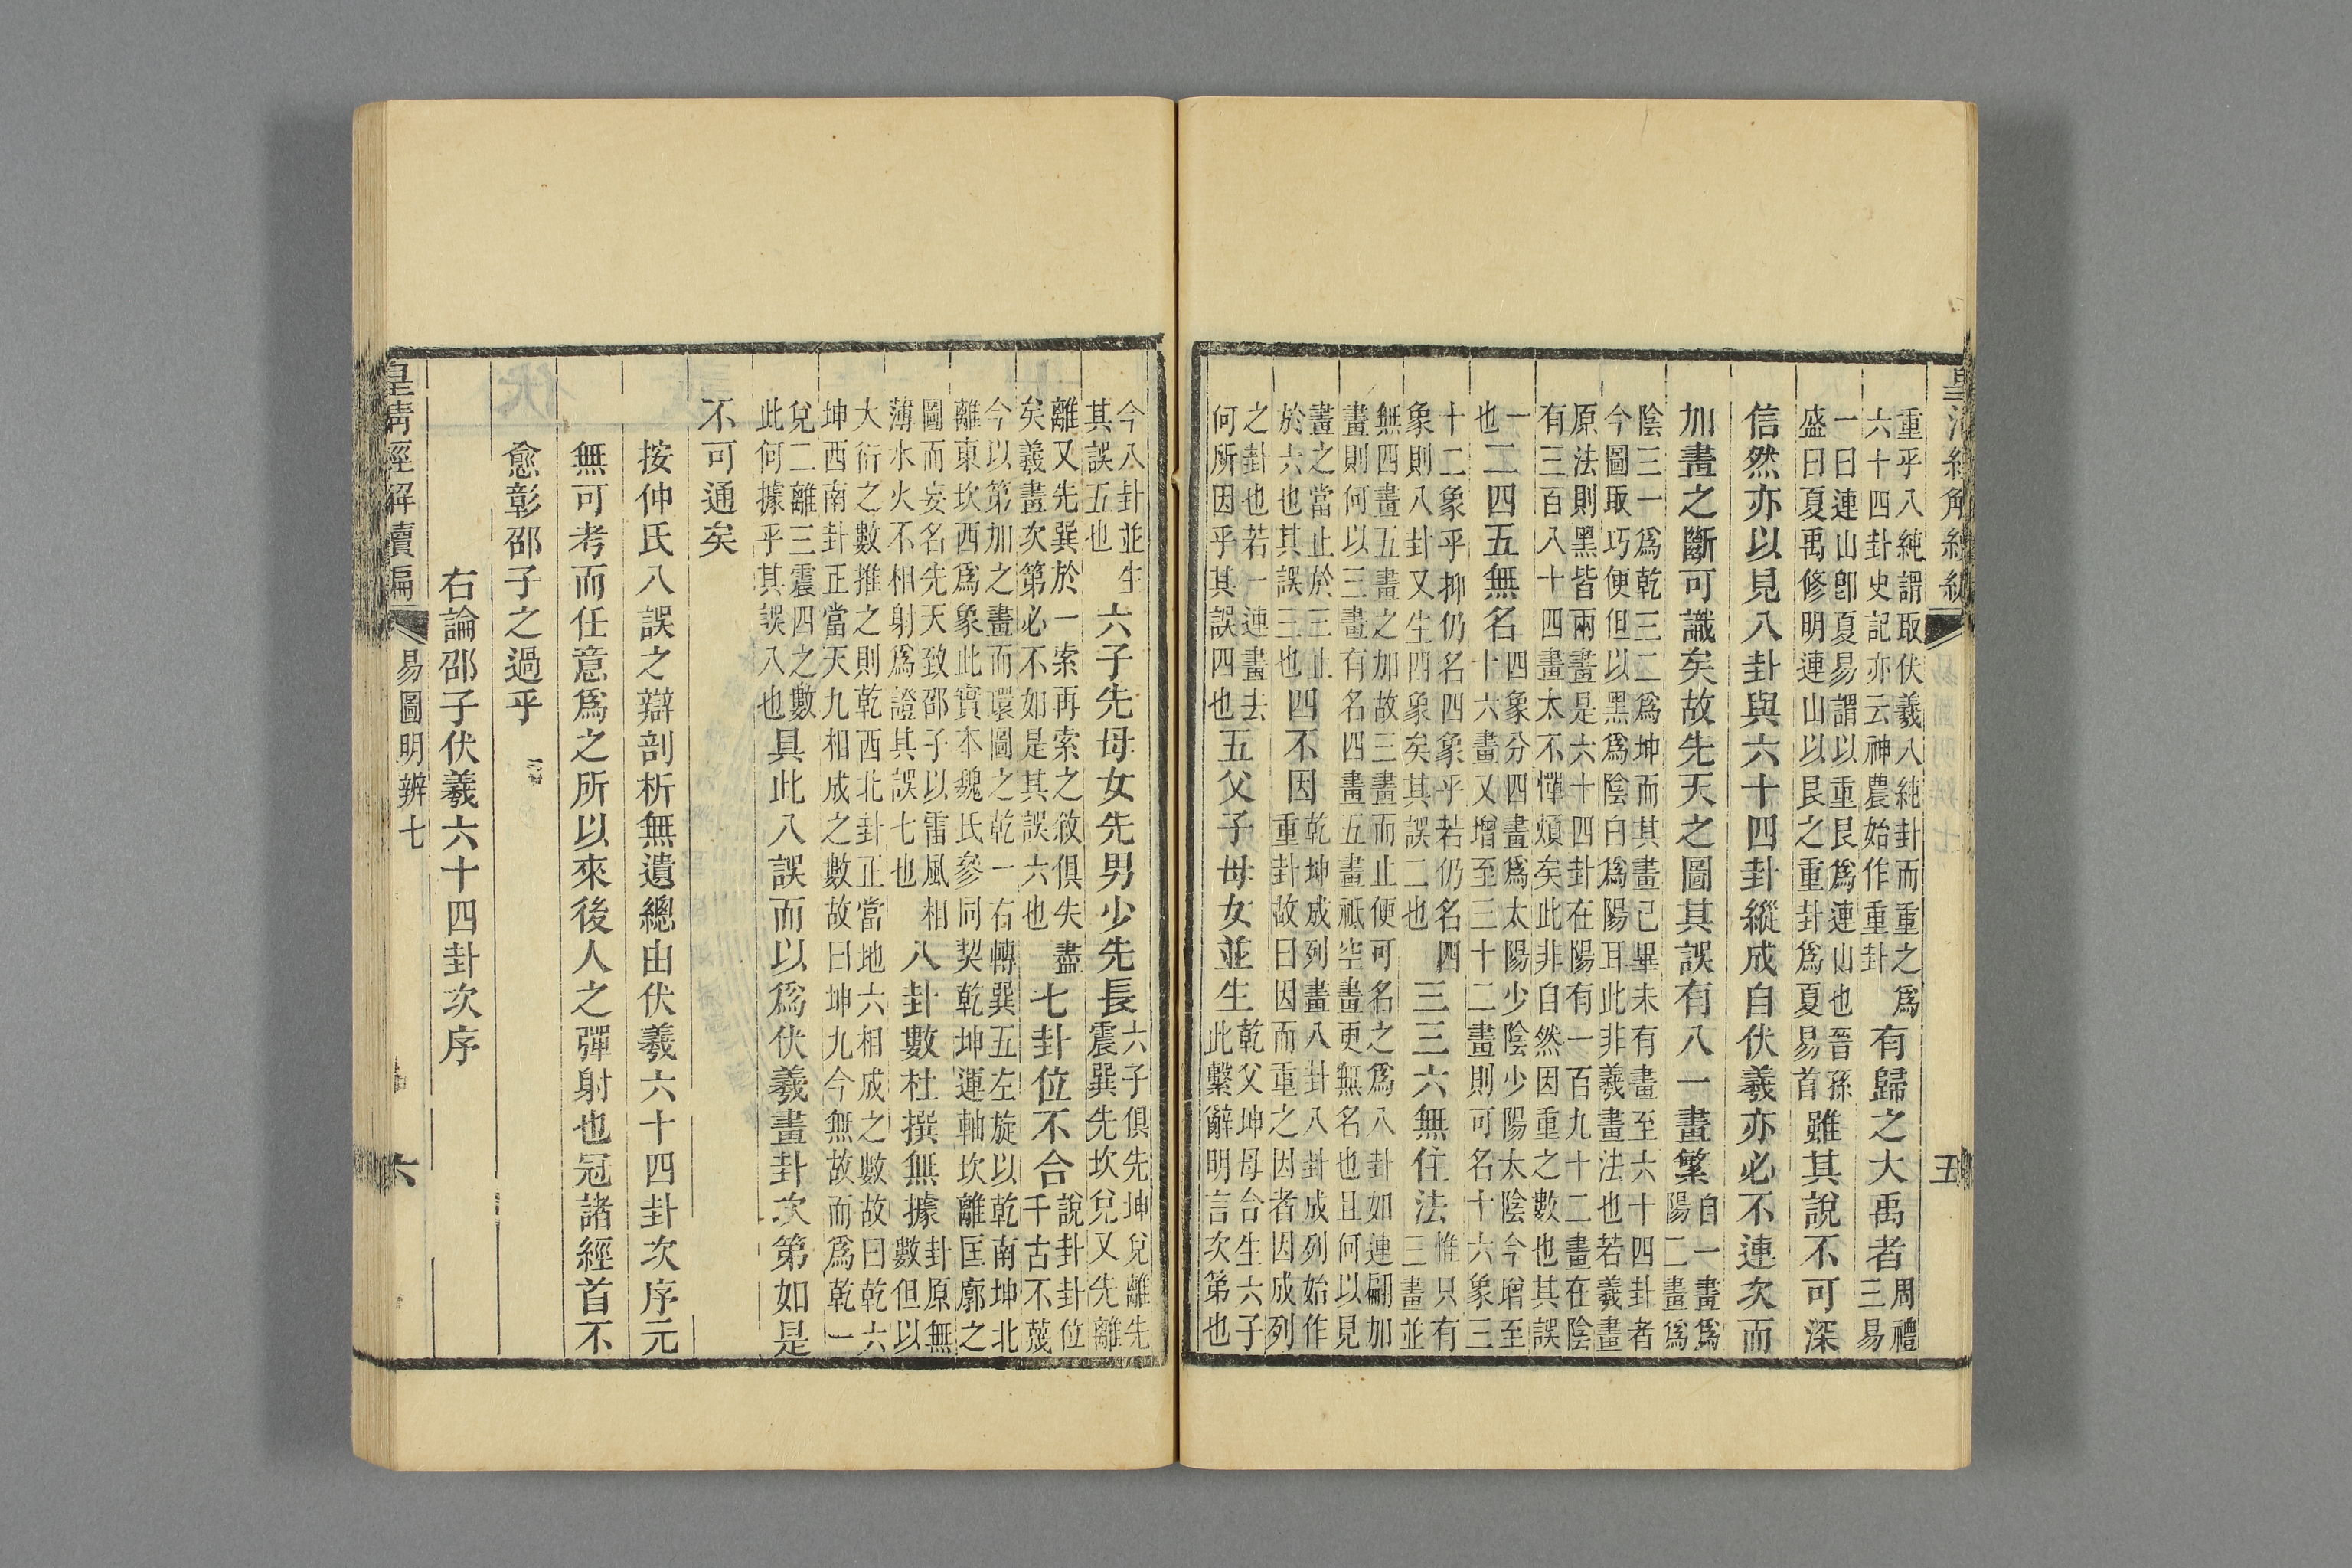 五
重乎八純謂取伏羲八純卦而重之爲
六十四卦史記亦云神農始作重卦
有歸之大禹者
周禮
三易
一曰連山卽夏易謂以重艮爲連山也晉孫
盛曰夏禹修明連山以艮之重卦爲夏易首
雖其說不可深
信然亦以見八卦與六十四卦縱成自伏羲亦必不連次而
加畫之斷可識矣故先天之圖其誤有八一畫繁
自一畫爲
陽二畫爲
陰三一爲乾三二爲坤而其畫已畢未有畫至六十四卦者
今圖取巧便但以黑爲陰白爲陽耳此非羲畫法也若羲畫
原法則黑皆兩畫是六十四卦在陽有一百九十二畫在陰
有三百八十四畫太不憚煩矣此非自然因重之數也其誤
一
也
二四五無名
四象分四畫爲太陽少陰少陽太陰今增至
十六畫又增至三十二畫則可名十六象三
十二象乎抑仍名四象乎若仍名四
象則八卦又生四象矣其誤二也
三三六無住法
惟只有
三畫並
無四畫五畫之加故三畫而止便可名之爲八卦如連翩加
畫則何以三畫有名四畫五畫祇空畫更無名也且何以見
畫之當止於三止
於六也其誤三也
四不因
乾坤成列畫八卦八卦成列始作
重卦故曰因而重之因者因成列
之卦也若一連畫去
何所因乎其誤四也
五父子母女並生
乾父坤母合生六子
此繫辭明言次第也
今八卦並生
其誤五也
六子先母女先男少先長
六子俱先坤兌離先
震巽先坎兌又先離
離又先巽於一索再索之敘俱失盡
矣羲畫次第必不如是其誤六也
七卦位不合
說卦卦位
千古不蔑
今以第加之畫而環圖之乾一右轉巽五左旋以乾南坤北
離東坎西爲象此實本魏氏參同契乾坤運軸坎離匡廓之
圖而妄名先天致邵子以雷風相
薄水火不相射爲證其誤七也
八卦數杜撰無據
卦原無
數但以
大衍之數推之則乾西北卦正當地六相成之數故曰乾六
坤西南卦正當天九相成之數故曰坤九今無故而爲乾一
兌二離三震四之數
此何據乎其誤八也
具此八誤而以爲伏羲畫卦次第如是
不可通矣
按仲氏八誤之辯剖析無遺總由伏羲六十四卦次序元
無可考而任意爲之所以來後人之彈射也冠諸經首不
愈彰邵子之過乎
右論邵子伏羲六十四卦次序
皇淸經解續編
易圖明辨七
六